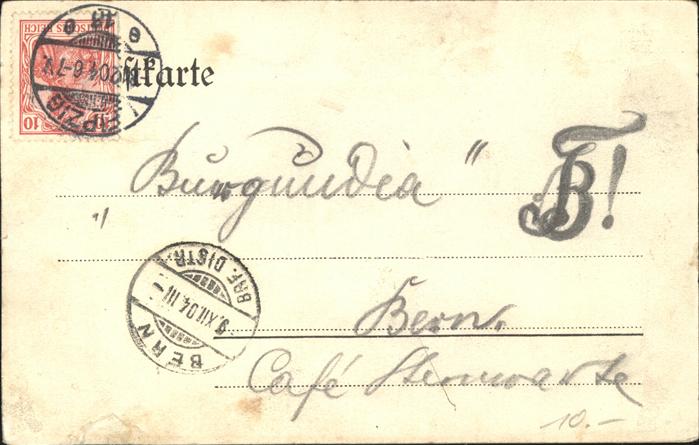 Postkarte
DEUTSCHES REICH
10 10
LEIPZIG
10
e e
"Burgundia" B!
BERN
9.XII.04.III-
BRF. DISTR.
Bern.
Café Sternwarte
10.-